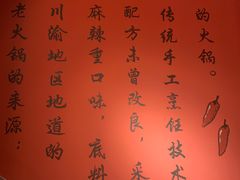 老火锅的来源：
川渝地区地道的
麻辣重口味，底料
配方未曾改良，采
传统手工烹饪技术
的火锅。